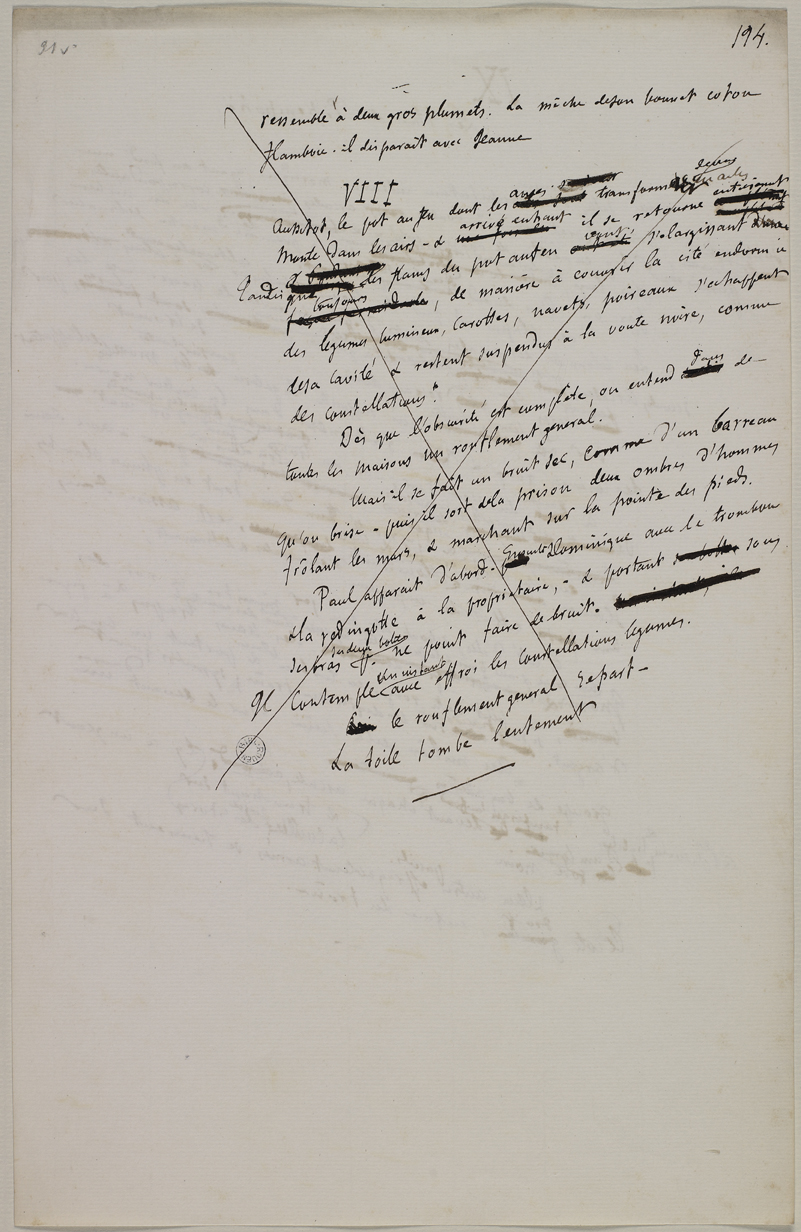 31v
194.
ressemble à deux gros plumets. La mêche deson bonnet coton
flamboie. il disparaît avec Jeanne
VIII
Aussitot, le pot au feu dont les anses transformées en ailes
monte dans les airs - & arrivé en haut il se retourne
Tandis que les flancs du pot au feu vont s'élargissant
toujours, de manière à couvrir la cité endormie
des legumes lumineux, carottes, navets, poireaux s'echappent
desa cavité & restent suspendus à la voute noire, comme
des constellations.
Dès que l'obscurité est complète, on entend dans
toutes les maisons un ronflement general.
Mais il se fait un bruit sec, comme d'un barreau
qu'on brise - puis il sort dela prison deux ombres d'hommes
frôlant les murs, & marchant sur la pointe des pieds.
Paul apparait d'abord - Dominique avec le trombone
& la redingotte à la propriétaire, - & portant sous
ses bras ses deux bottes pr ne point faire de bruit.
Il contemple un instant avec effroi les constellations legumes.
le ronflement general repart -
La toile tombe lentement